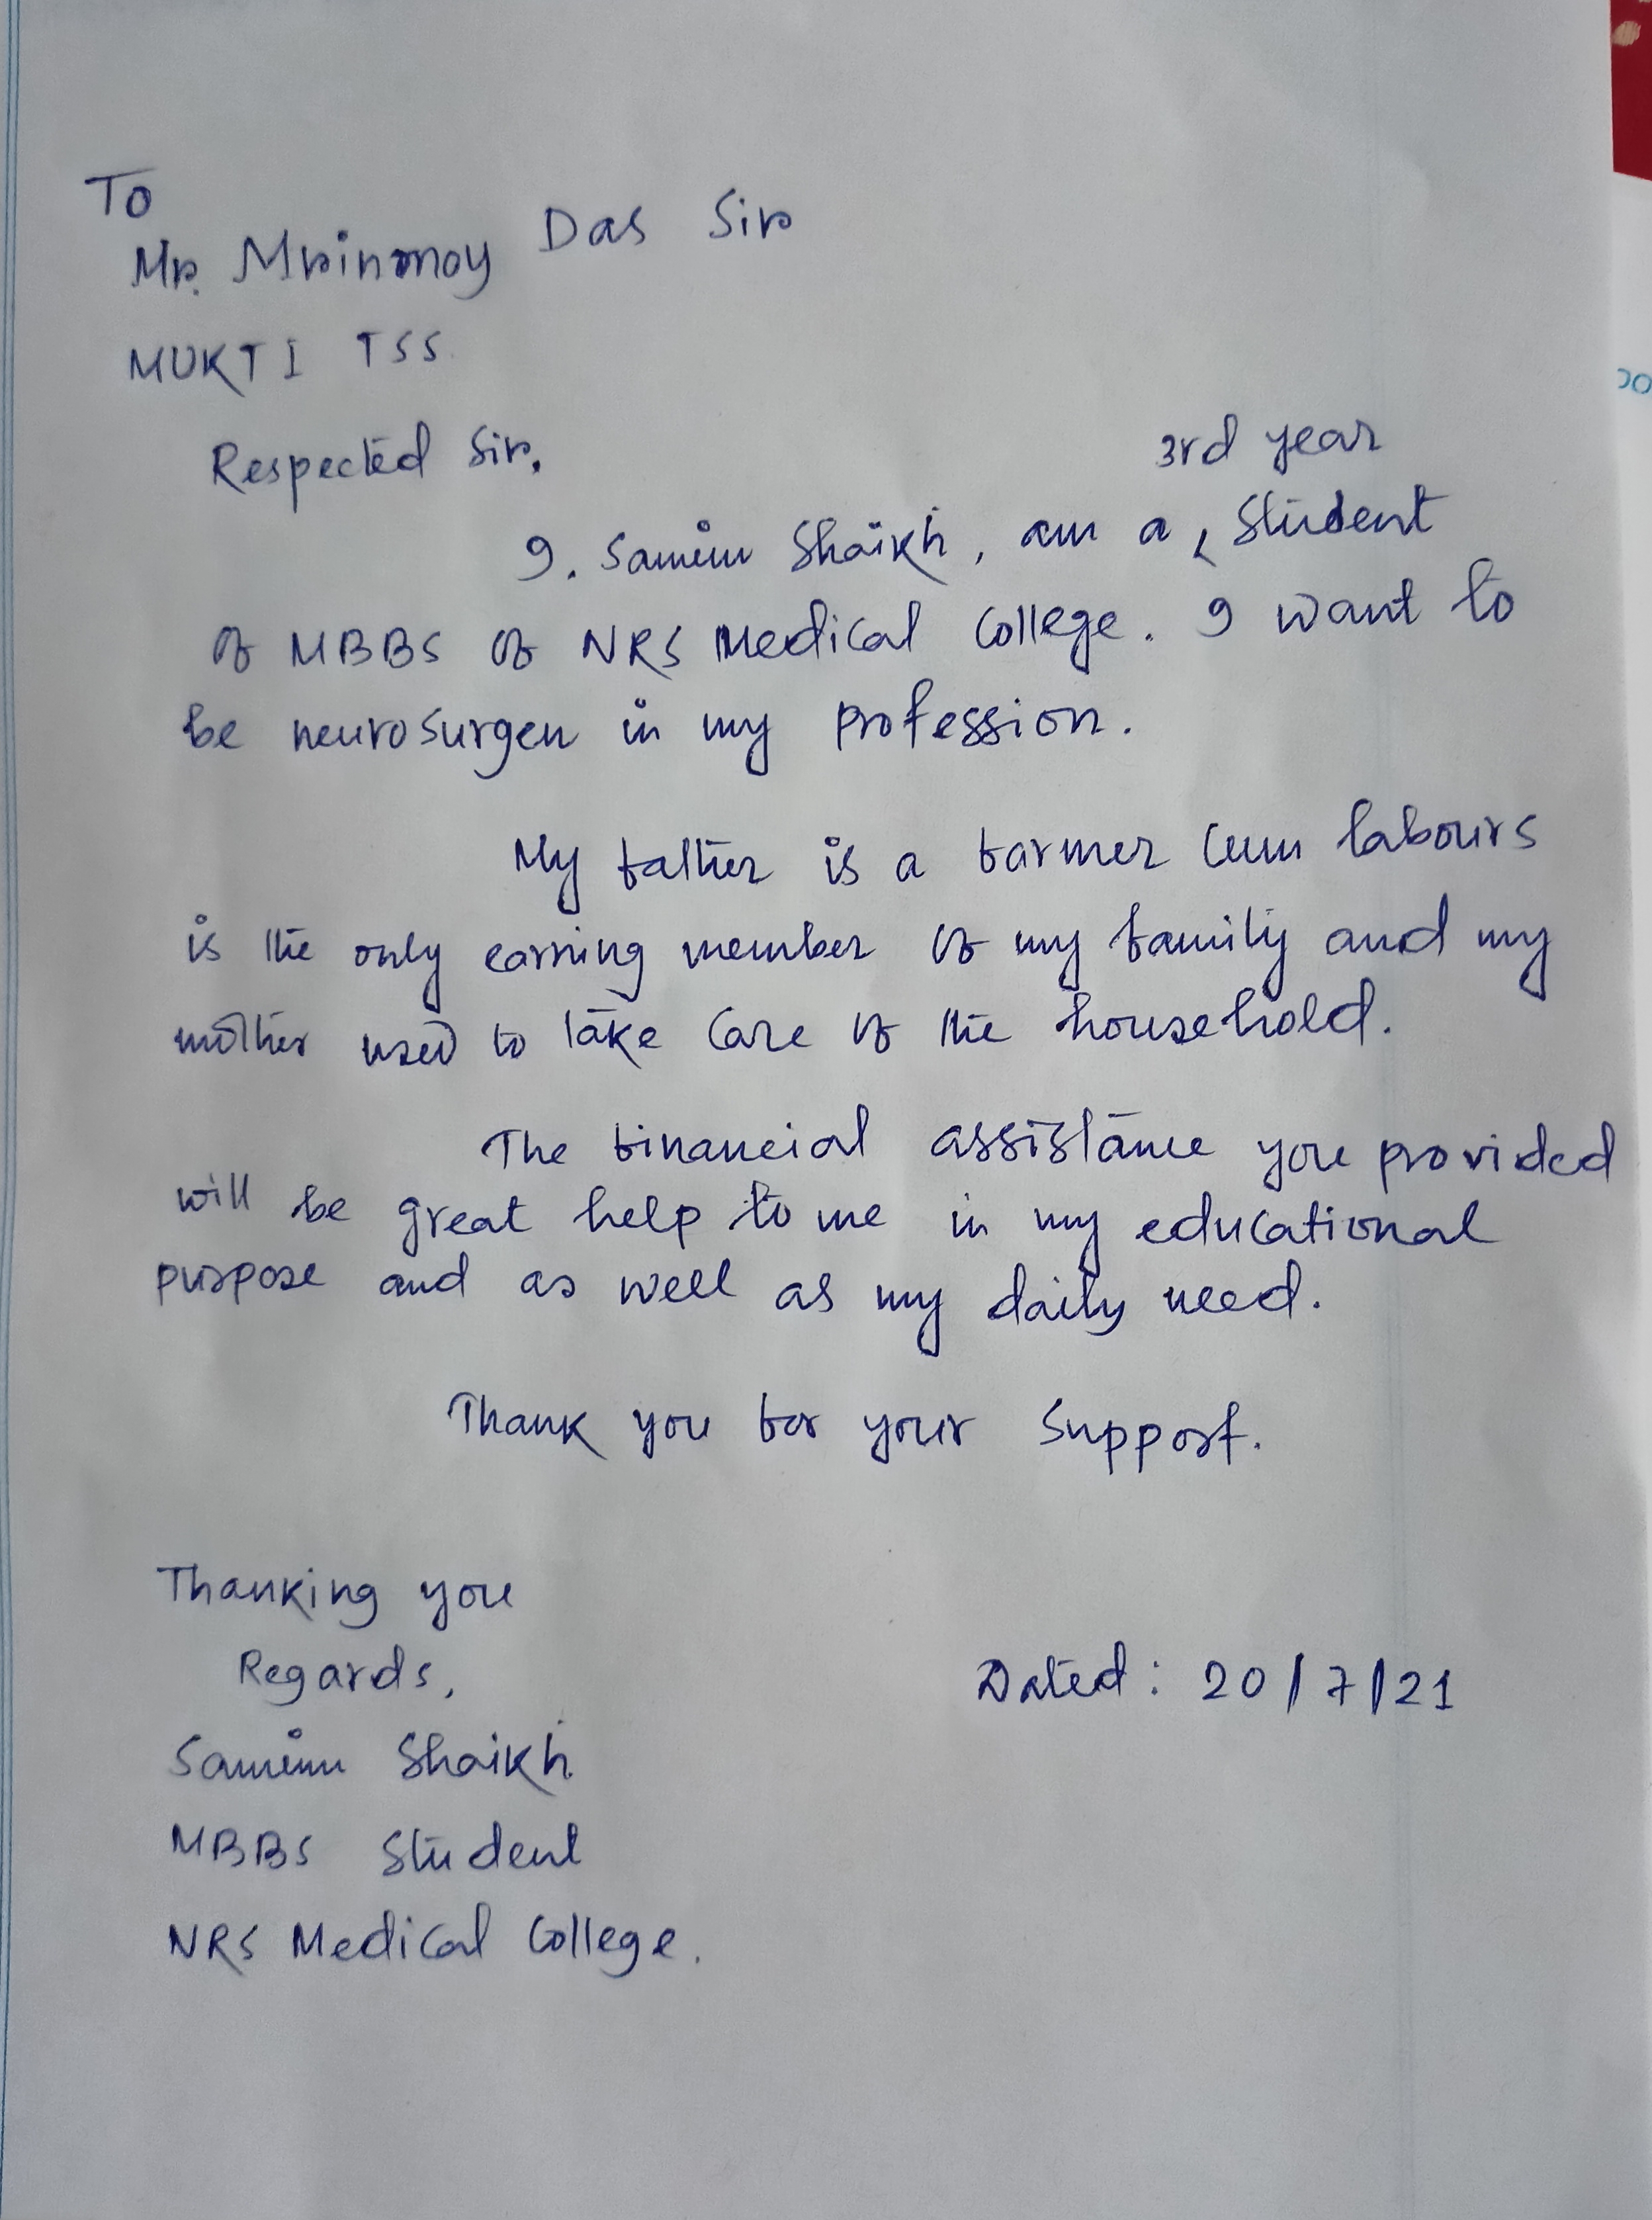 To
Mr. Mrinmoy Das Sir
MUKTI TSS
Respected Sir,
3rd year
I. Samim Shaikh, am a student
of MBBS of NRS Medical College. I want to
be neurosurgen in my profession.
My father is a farmer cum labours
is the only earning member of my family and my
mother used to take care of the household.
The financial assistance you provided
will be great help to me in my educational
purpose and as well as my daily need.
Thank you for your support.
Thanking you
Regards,
Dated: 20/7/21
Samim Shaikh
MBBS Student
NRS Medical College.